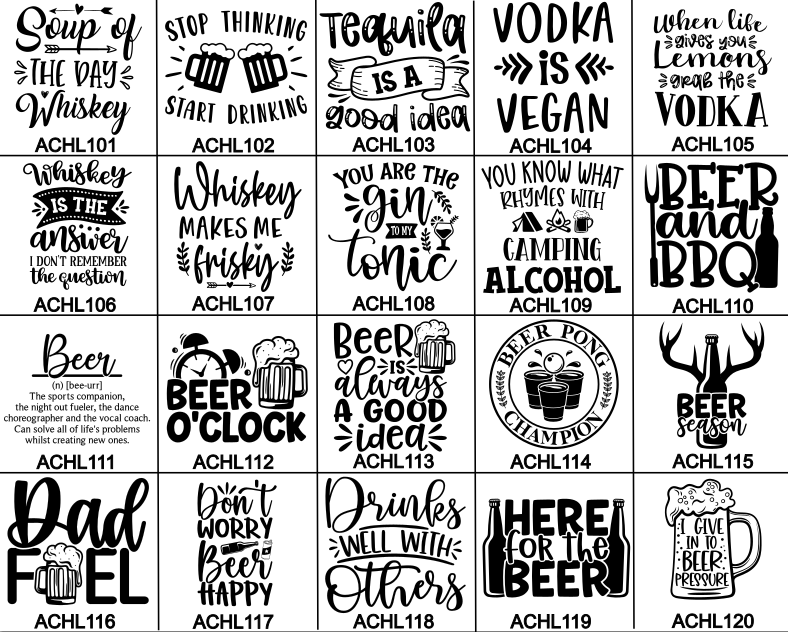 Soup of
THE DAY
Whiskey
ACHL101
STOP THINKING
START DRINKING
ACHL102
Tequila
IS A
good idea
ACHL103
VODKA
is
VEGAN
ACHL104
When life
gives you
Lemons
grab the
VODKA
ACHL105
Whiskey
IS THE
answer
I DON'T REMEMBER
the question
ACHL106
Whiskey
MAKES ME
frisky
ACHL107
YOU ARE THE
gin
TO MY
tonic
ACHL108
YOU KNOW WHAT
RHYMES WITH
CAMPING
ALCOHOL
ACHL109
BEER
and
BBQ
ACHL110
Beer
(n) [bee-urr]
The sports companion,
the night out fueler, the dance
choreographer and the vocal coach.
Can solve all of life's problems
whilst creating new ones.
ACHL111
BEER
O'CLOCK
ACHL112
BEER
IS
always
A GOOD
idea
ACHL113
BEER PONG
CHAMPION
ACHL114
BEER
season
ACHL115
Dad
FUEL
ACHL116
Don't
WORRY
Beer
HAPPY
ACHL117
Drinks
WELL WITH
Others
ACHL118
HERE
for the
BEER
ACHL119
I GIVE
IN TO
BEER
PRESSURE
ACHL120